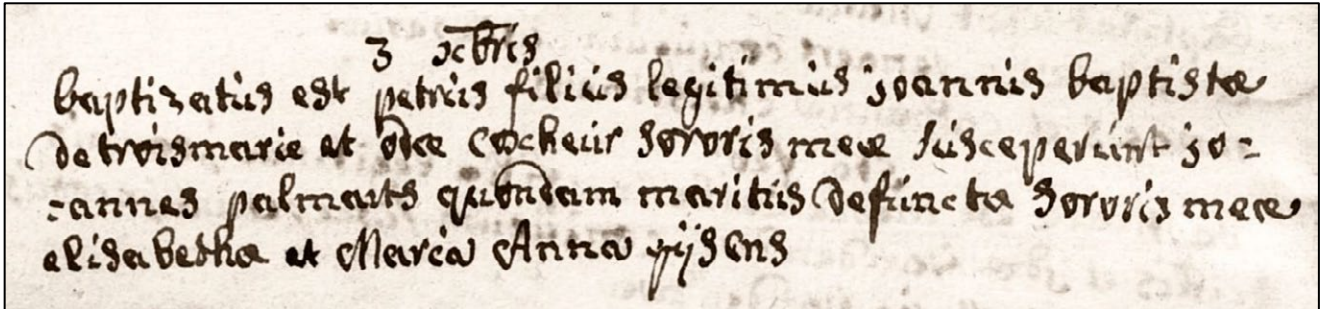 3 xbris
baptizatus est petrus filius legitimus joannis baptistæ
de troismarie et odæ cocheur sororis meæ susceperunt jo=
=annes palmarts quondam maritus defunctæ sororis meæ
elisabethæ et Maria Anna gijsens